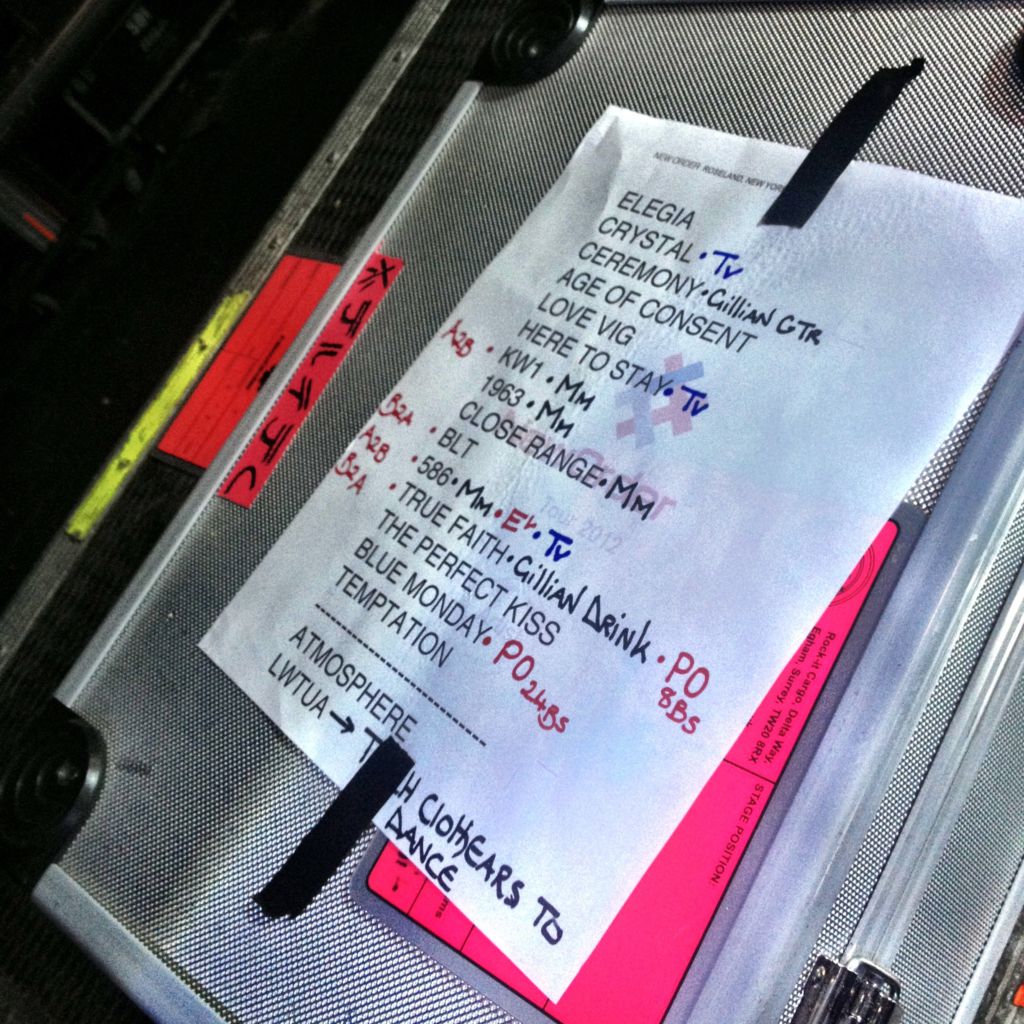 NEW ORDER: ROSELAND, NEW YORK
ELEGIA
CRYSTAL • Tv
CEREMONY • Gillian GTR
AGE OF CONSENT
LOVE VIG
HERE TO STAY • Tv
A2B • KW1 • Mm
1963 • Mm
CLOSE RANGE • Mm
B2A • BLT
A2B • 586 • Mm • Tv
B2A • TRUE FAITH • Gillian Drink • PO 8Bs
THE PERFECT KISS
BLUE MONDAY • PO 24Bs
TEMPTATION
ATMOSPHERE
LWTUA →
CloTHEARS TO
DANCE
Tour 2012
Rock-it Cargo, Delta Way,
Egham, Surrey, TW20 8RX
STAGE POSITION: